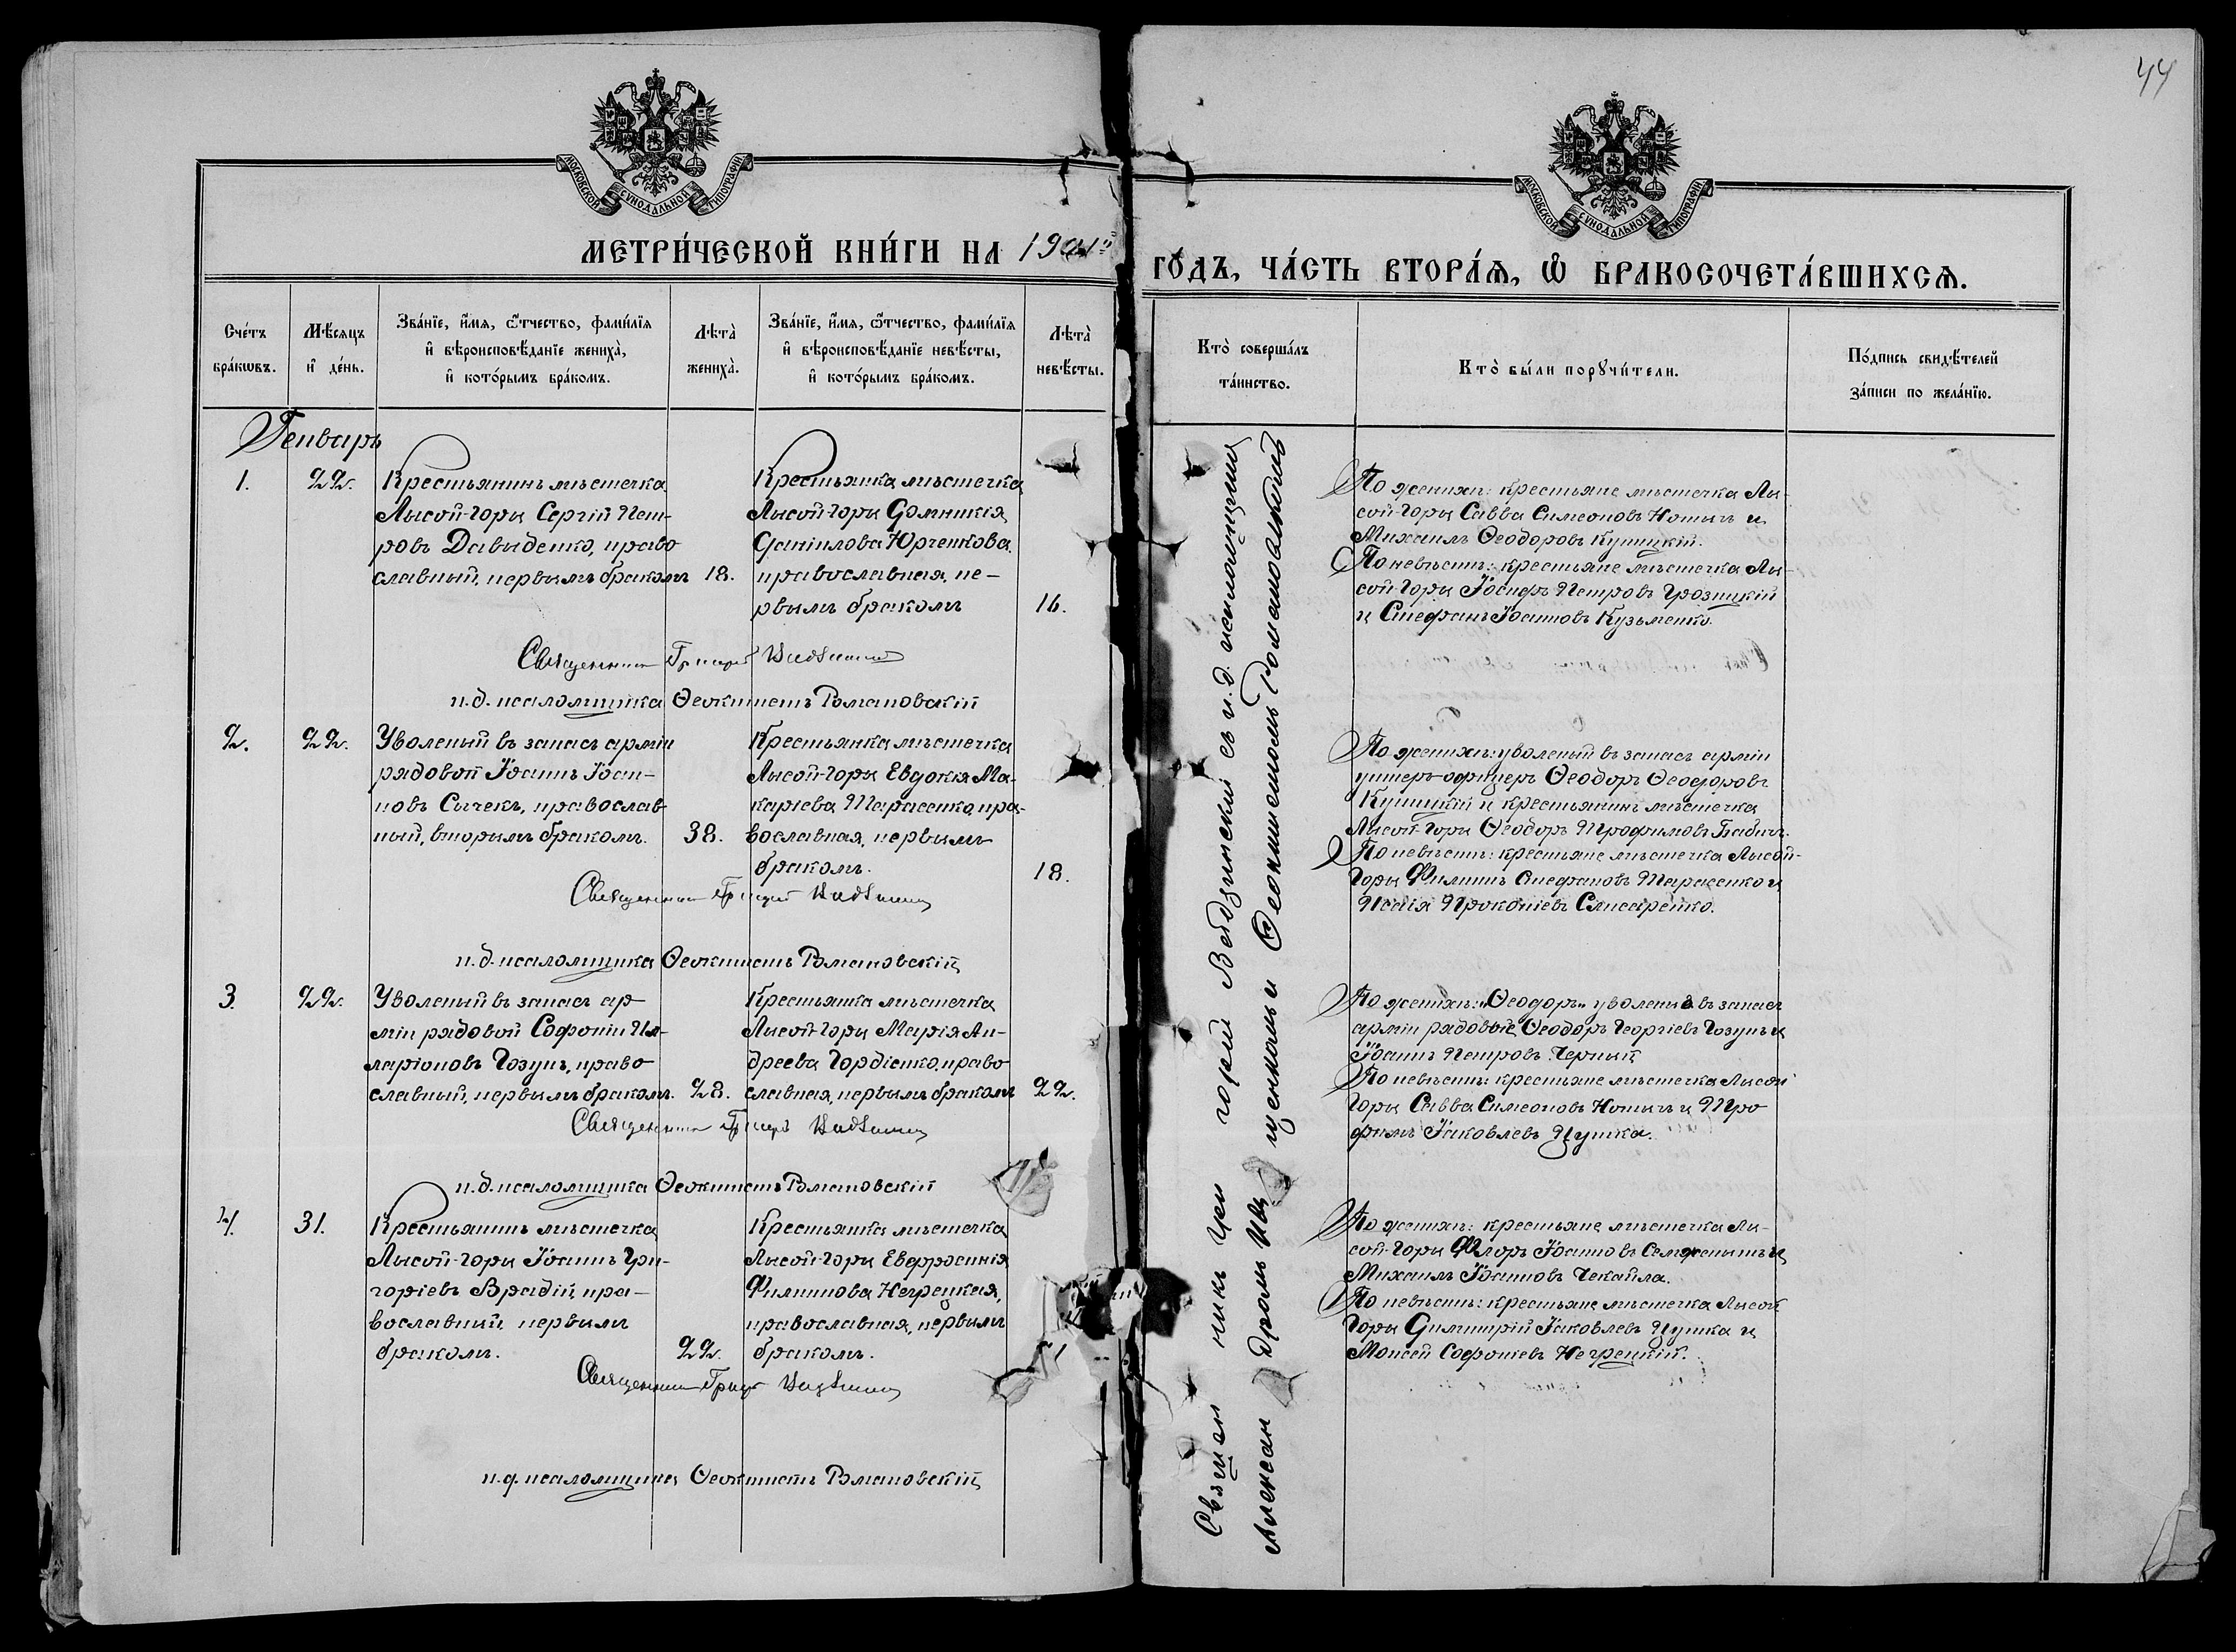 44
МОСКОВСКОЙ СѴНОДАЛЬНОЙ ТИПОГРАФІИ
МОСКОВСКОЙ СѴНОДАЛЬНОЙ ТИПОГРАФІИ
МЕТРИ́ЧЕСКОЙ КНИ́ГИ НА 1901й
ГО́ДЪ, ЧА́СТЬ ВТОРА́Ѧ, Ѽ БРАКОСОЧЕТА́ВШИХСѦ.
Сче́тъ бра́кѡвъ.
Мѣ́сяцъ и҆ де́нь.
Зва́нїе, и҆́мѧ, ѻ҆́тчество, фами́лїѧ и҆ вѣроисповѣ́данїе жениха̀, и҆ кото́рымъ бра́комъ.
Лѣта̀ жениха̀.
Зва́нїе, и҆́мѧ, ѻ҆́тчество, фами́лїѧ и҆ вѣроисповѣ́данїе невѣ́сты, и҆ кото́рымъ бра́комъ.
Лѣта̀ невѣ́сты.
Кто̀ соверша́лъ та́инство.
Кто̀ бы́ли порꙋчи́тели.
По́дпись свидѣ́телей за́писи по жела́нїю.
Генварь
1.
22.
Крестьянинъ мѣстечка
Лысой-Горы Сергій Пет-
ровъ Давыденко, право
славный, первымъ бракомъ
18.
Крестьянка мѣстечка
Лысой-Горы Домникія
Даніилова Юрченкова
православная, пе-
рвымъ бракомъ
16.
По женихѣ: крестьяне мѣстечка Лы-
сой-Горы Савва Симеоновъ Ногычъ и
Михаилъ Ѳеодоровъ Куницкій.
По невѣстѣ: крестьяне мѣстечка Лы-
сой-Горы Іосифъ Петровъ Грозицкій
и Стефанъ Іоанновъ Кузьменко.
Священникъ Григорій
и.д. псаломщика Ѳеоктистъ Романовскій
2.
22.
Уволеный въ запасъ арміи
рядовой Іоаннъ Іоан-
новъ Сычекъ, православ
ный, вторымъ бракомъ.
38.
Крестьянка мѣстечка
Лысой-Горы Евдокія Ма-
каріева Тарасенко, пра-
вославная, первымъ
бракомъ.
18.
По женихѣ: уволеный въ запасъ арміи
унтеръ-офицеръ Ѳеодоръ Ѳеодоровъ
Куницкій и крестьянинъ мѣстечка
Лысой-Горы Ѳеодоръ Трофимовъ Бабичъ.
По невѣстѣ: крестьяне мѣстечка Лысой-
Горы Филиппъ Стефановъ Тарасенко и
Исаія Прокопіевъ Слисаренко.
Священникъ Григорій
и.д. псаломщика Ѳеоктистъ Романовскій
3.
22.
Уволеный въ запасъ ар
міи рядовой Софоній Ил-
ларіоновъ Гозунъ, право
славный, первымъ бракомъ.
28.
Крестьянка мѣстечка
Лысой-Горы Марія Ан-
дреева Гордіенко, право
славная, первымъ бракомъ
22.
По женихѣ: „Ѳеодоръ„ уволены въ запасъ
арміи рядовые Ѳеодоръ Георгіевъ Гозунъ и
Іоаннъ Петровъ Черный
По невѣстѣ: крестьяне мѣстечка Лысой
Горы Савва Симеоновъ Ногычъ и Тро
фимъ Іаковлевъ Цупка.
Священникъ Григорій
и.д. псаломщика Ѳеоктистъ Романовскій
4.
31.
Крестьянинъ мѣстечка
Лысой-Горы Іоаннъ Гри-
горіевъ Врадій, пра-
вославный первымъ
бракомъ.
22.
Крестьянка мѣстечка
Лысой-Горы Евфросинія
Филиппова Негрецкая,
православная, первымъ
бракомъ.
По женихѣ: крестьяне мѣстечка Лы-
сой-Горы Флоръ Іоанновъ и
Михаилъ Іоанновъ Чекайла.
По невѣстѣ: крестьяне мѣстечка Лысой
Горы Димитрій Іаковлевъ Цупка и
Моисей Софоніевъ Негрецкій.
Священникъ Григорій
и.д. псаломщика Ѳеоктистъ Романовскій
Священникъ Григорій съ и.д. псаломщика
Александромъ и Ѳеоктистомъ Романовскимъ